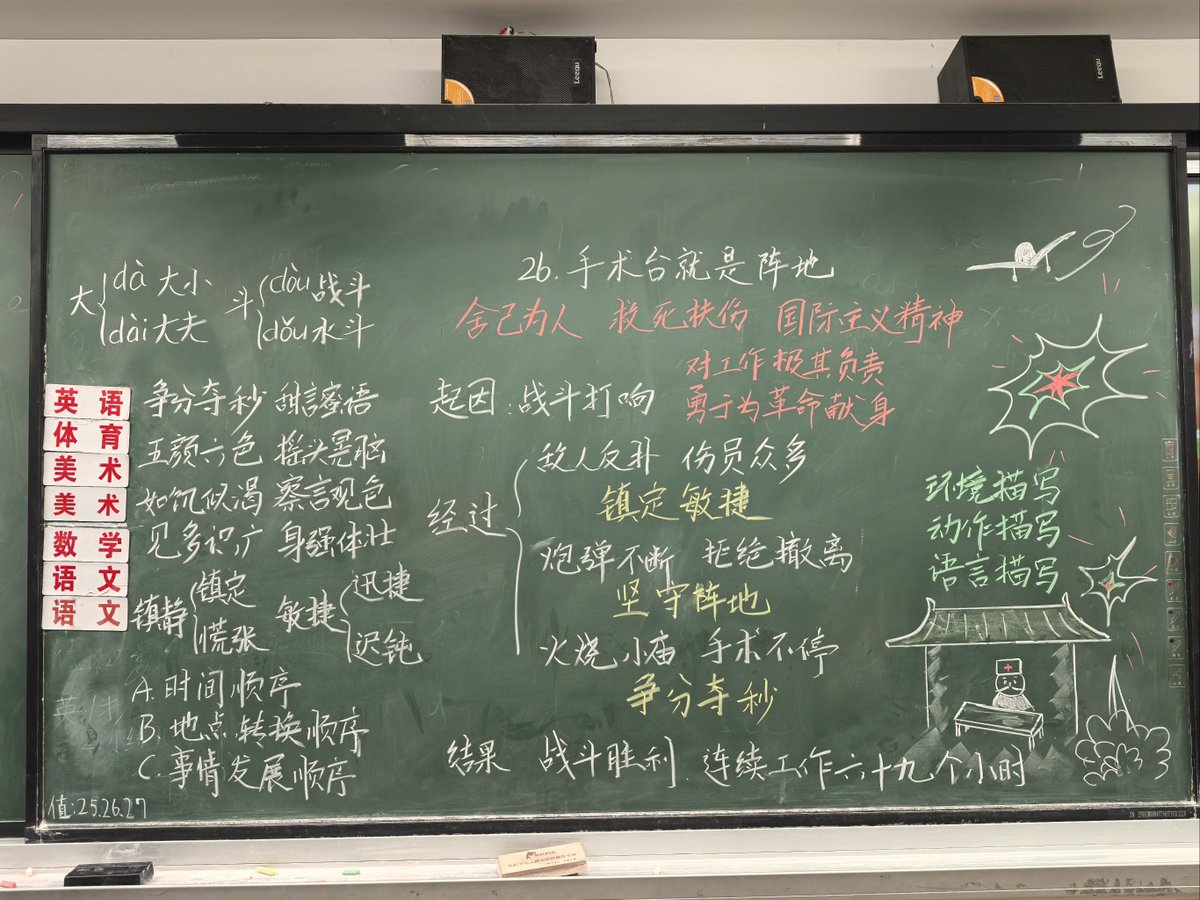 Leequ
Leequ
大 dà 大小
dài 大夫
斗 dòu 战斗
dǒu 水斗
争分夺秒 甜言蜜语
五颜六色 摇头晃脑
如饥似渴 察言观色
见多识广 身强体壮
镇静 镇定
慌张
敏捷 迅捷
迟钝
A.时间顺序
B.地点转换顺序
C.事情发展顺序
值:25.26.27
英语
体育
美术
美术
数学
语文
语文
26.手术台就是阵地
舍己为人 救死扶伤 国际主义精神
对工作极其负责
勇于为革命献身
起因:战斗打响
经过
敌人反扑 伤员众多
镇定敏捷
炮弹不断 拒绝撤离
坚守阵地
火烧小庙 手术不停
争分夺秒
结果 战斗胜利 连续工作六十九个小时
环境描写
动作描写
语言描写